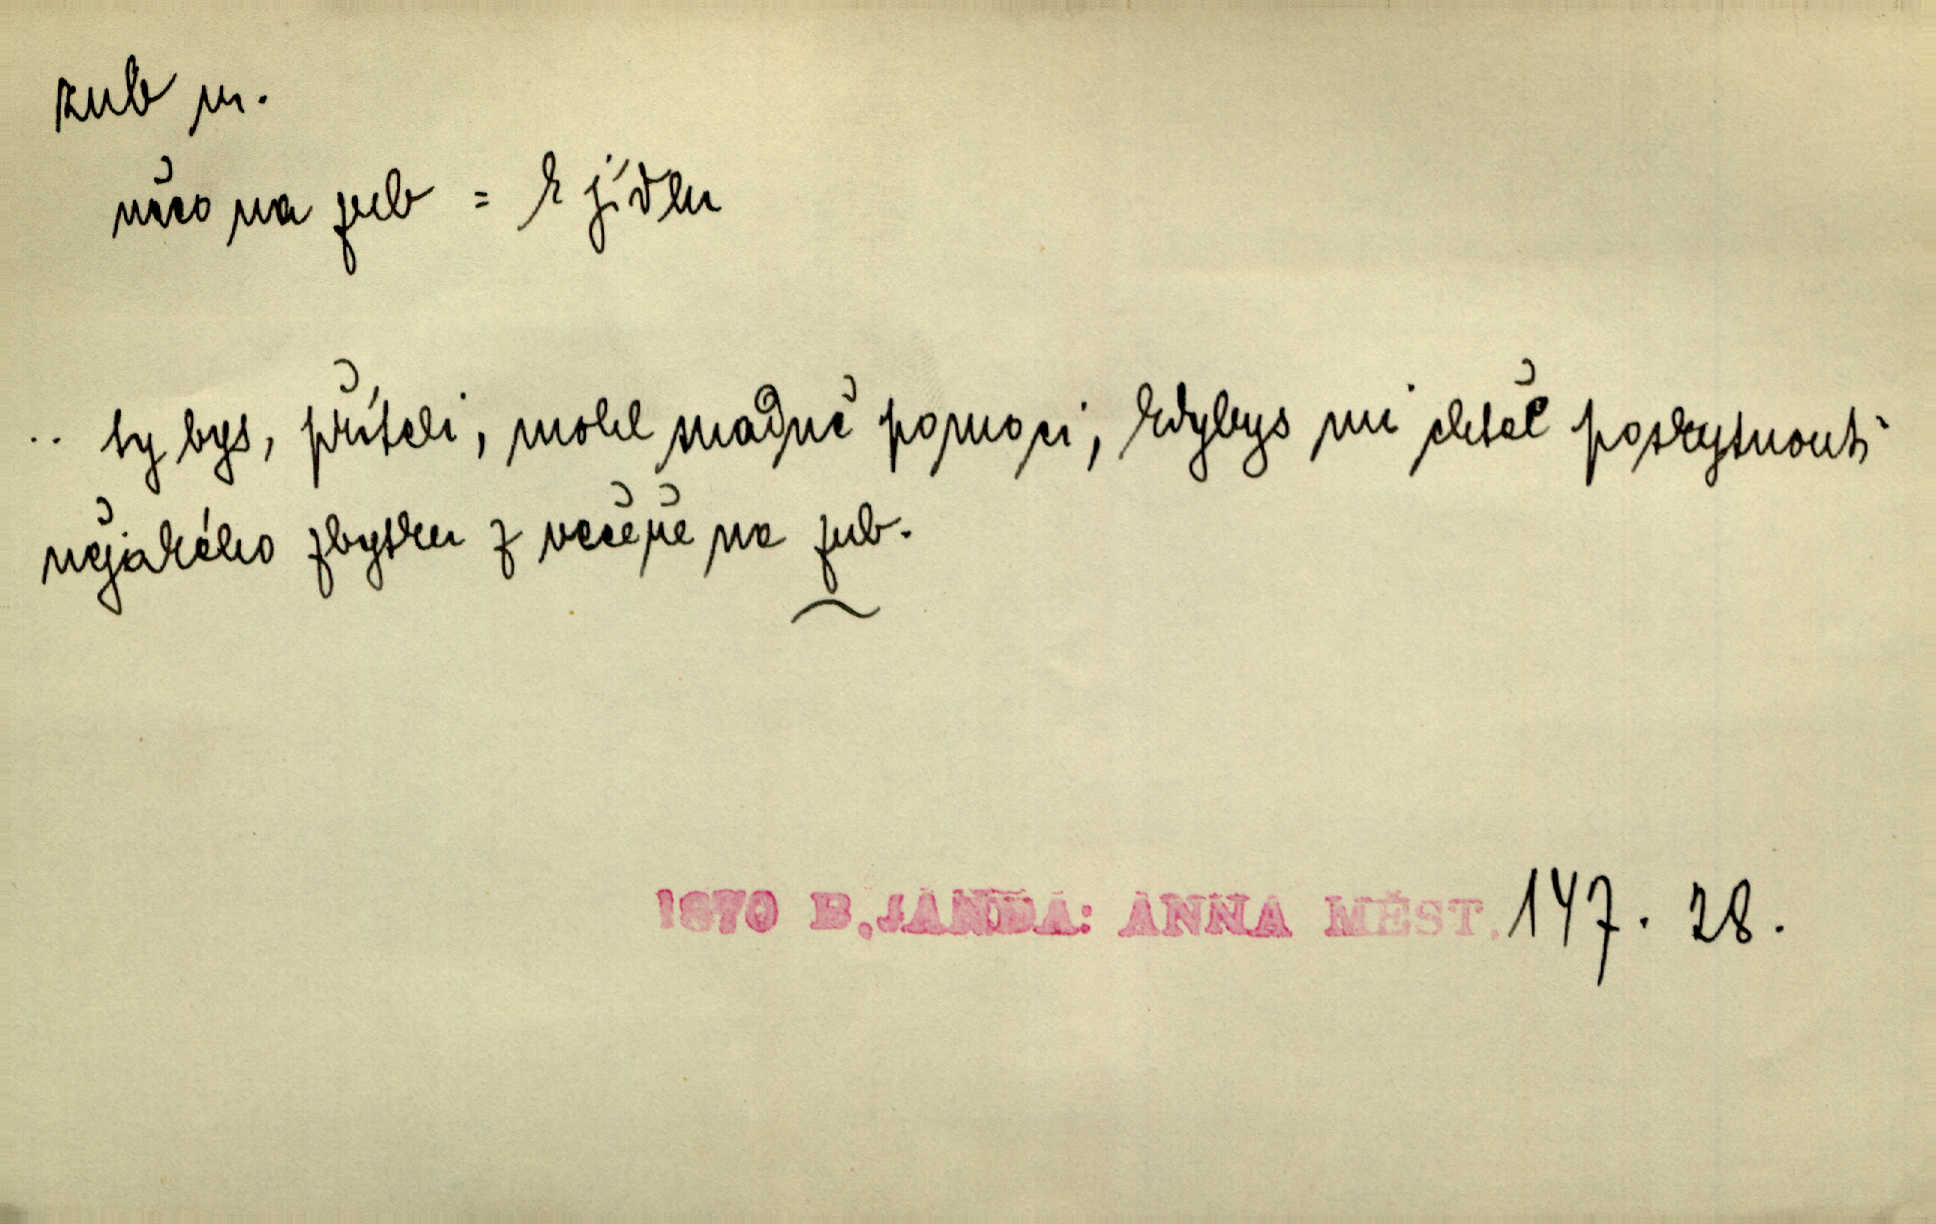 zub m.
něco na zub = k jídlu
.. ty bys, příteli, mohl snadně pomoci, kdybys mi chtěl poskytnouti
nějakého zbytku z večeře na zub.
1870 B. JANDA: ANNA MĚST. 147. 28.